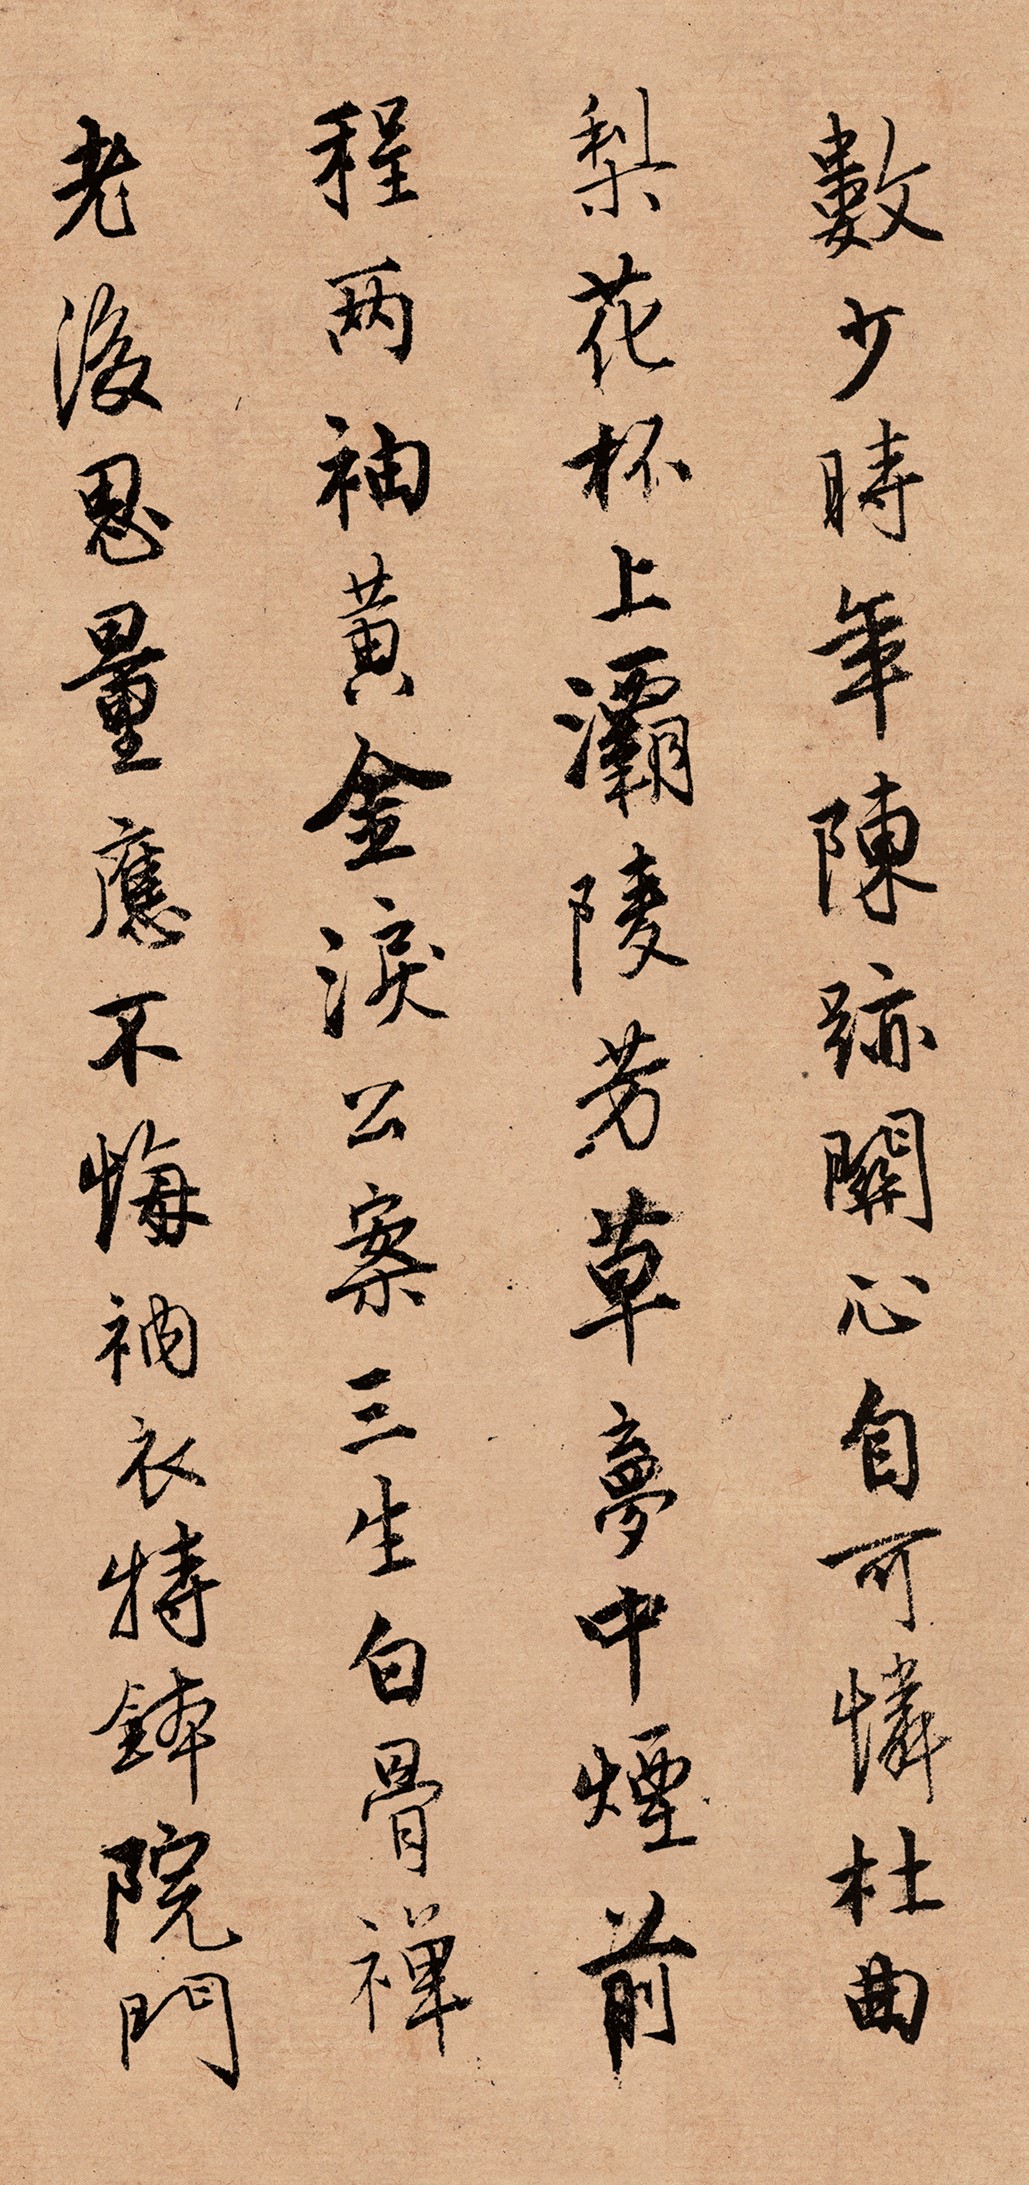 數少時年陳跡關心自可憐杜曲
梨花杯上灞陵芳草夢中煙前
程両袖黄金淚公案三生白骨禪
老後思量應不悔衲衣持鉢院門